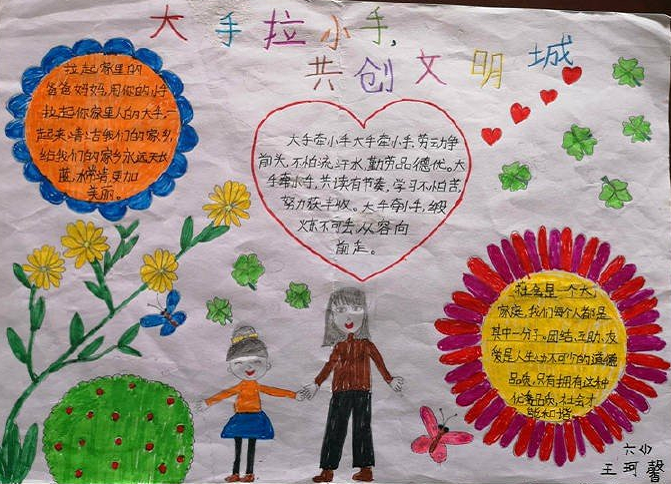 大手拉小手,
共创文明城
拉起家里的
爸爸妈妈,用你的小手
拉起你家里人的大手,一
起来清洁我们的家乡,
给我们的家乡永远天长
蓝,水常清,更加
美丽。
大手牵小手大手牵小手,劳动争
前头,不怕流汗水,勤劳品德优。大
手牵小手,共读有节奏,学习不怕苦,
努力获丰收。大手牵小手,
火不可丢,从容向
前走。
社会是一个大
家庭,我们每个人都是
其中一分子。团结、互助、友
爱是人生必不可少的道德
品质,只有拥有这种
优秀品质,社会才
能和谐。
六(1)
王珂馨